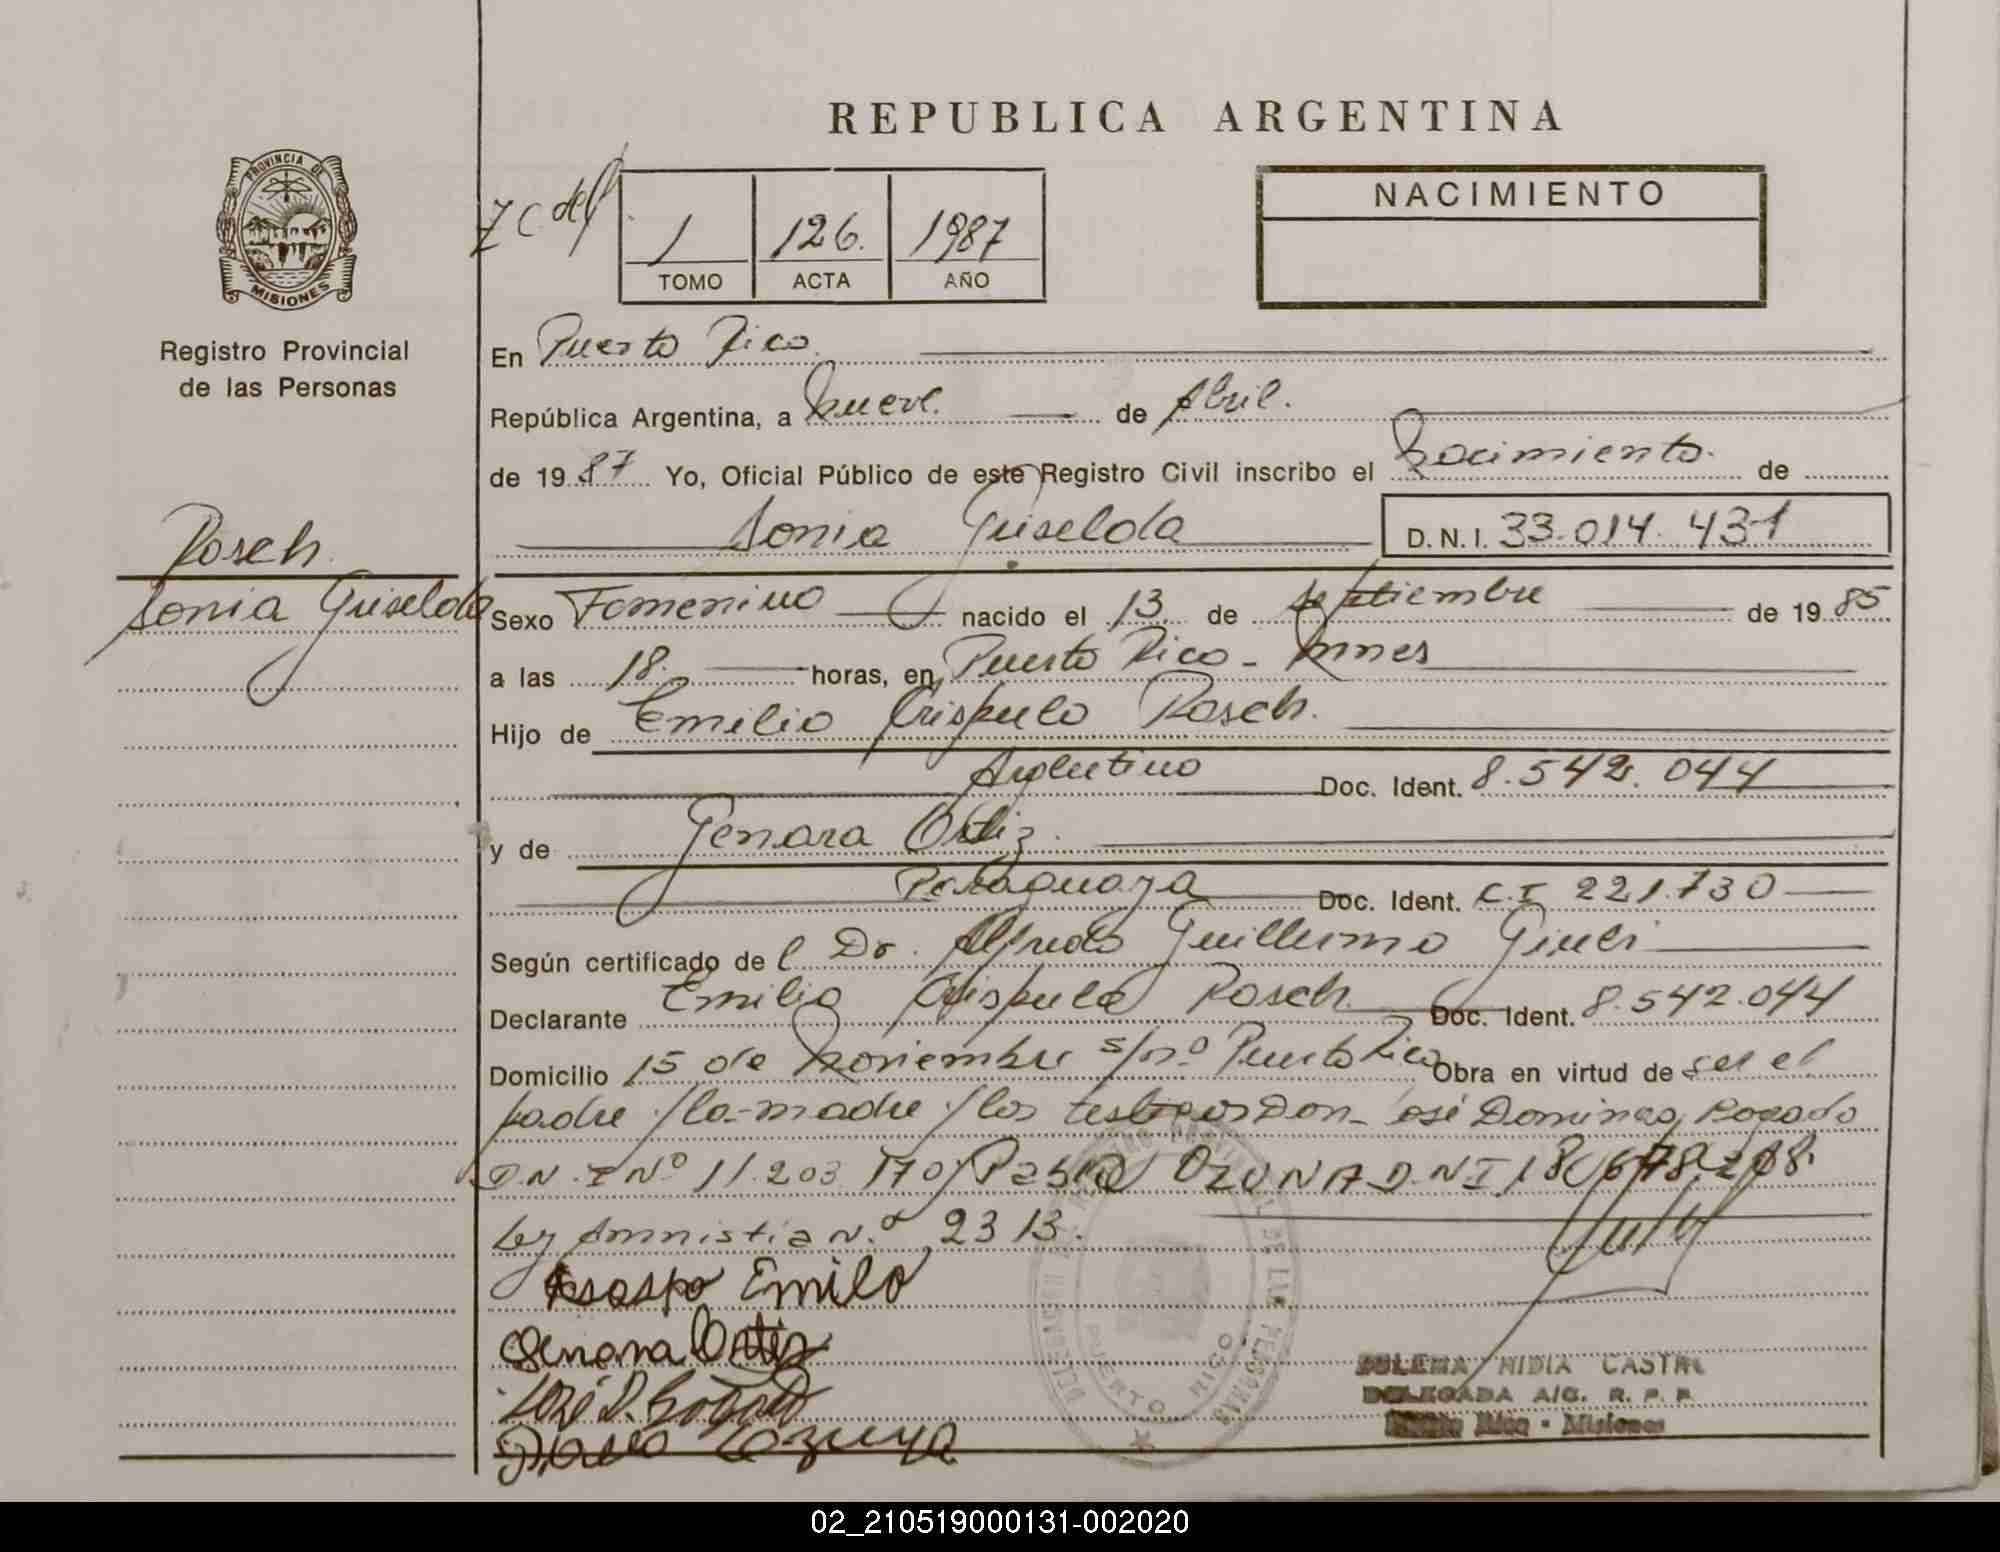 REPUBLICA ARGENTINA
PROVINCIA DE
MISIONES
Registro Provincial
de las Personas
1 126. 1987
TOMO ACTA AÑO
NACIMIENTO
En Puerto Rico
República Argentina, a nueve. de Abril.
de 1987 Yo, Oficial Público de este Registro Civil inscribo el Nacimiento. de
Sonia Griselda D.N.I. 33.014.431
Rosch.
Sonia Griselda
Sexo Femenino nacido el 13 de septiembre de 1985
a las 18. horas, en Puerto Rico - Mnes
Hijo de Emilio Crispulo Rosch.
Argentino Doc. Ident. 8.542.044
y de Genara Ortiz.
Paraguaya Doc. Ident. C.I 221.730
Según certificado del Dr. Alfredo Guillermo
Declarante Emilio Crispulo Rosch Doc. Ident. 8.542.044
Domicilio 15 de Noviembre s/nº Puerto Rico Obra en virtud de ser el
padre / la madre / los testigos Don José Domingo Bogado
D.N.I Nº 11.203.170 OZUNA D.N.I
Ley Amnistia N.º 2313.
Emilo
Genara Ortiz
José D. Bogado
PUERTO RICO
DE LAS PERSONAS
NIDIA CASTRO
DELEGADA A/C. R. P. P.
Puerto Rico - Misiones
02_210519000131-002020